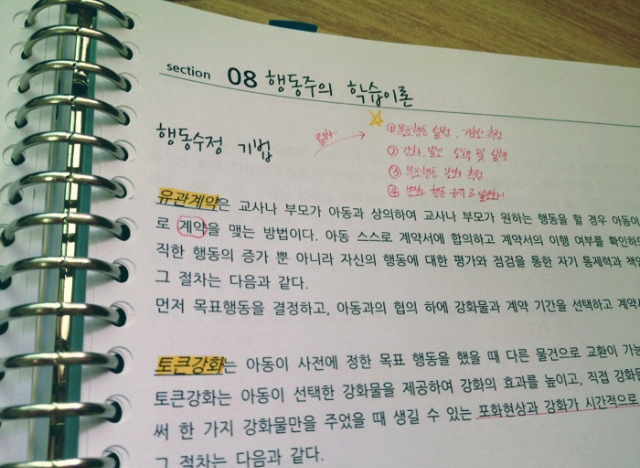 section 08 행동주의 학습이론
행동수정 기법
절차
① 목표행동 설정, 기초선 측정
② 강화, 벌인 선택 및 실행
③ 목표행동 변화 측정
④
유관계약은 교사나 부모가 아동과 상의하여 교사나 부모가 원하는 행동을 할 경우 아동이
로 계약을 맺는 방법이다. 아동 스스로 계약서에 합의하고 계약서의 이행 여부를 확인하
직한 행동의 증가 뿐 아니라 자신의 행동에 대한 평가와 점검을 통한 자기 통제력과 책임
그 절차는 다음과 같다.
먼저 목표행동을 결정하고, 아동과의 협의 하에 강화물과 계약 기간을 선택하고 계약서
토큰강화는 아동이 사전에 정한 목표 행동을 했을 때 다른 물건으로 교환이 가능
토큰강화는 아동이 선택한 강화물을 제공하여 강화의 효과를 높이고, 직접 강화물
써 한 가지 강화물만을 주었을 때 생길 수 있는 포화현상과 강화가 시간적으로
그 절차는 다음과 같다.